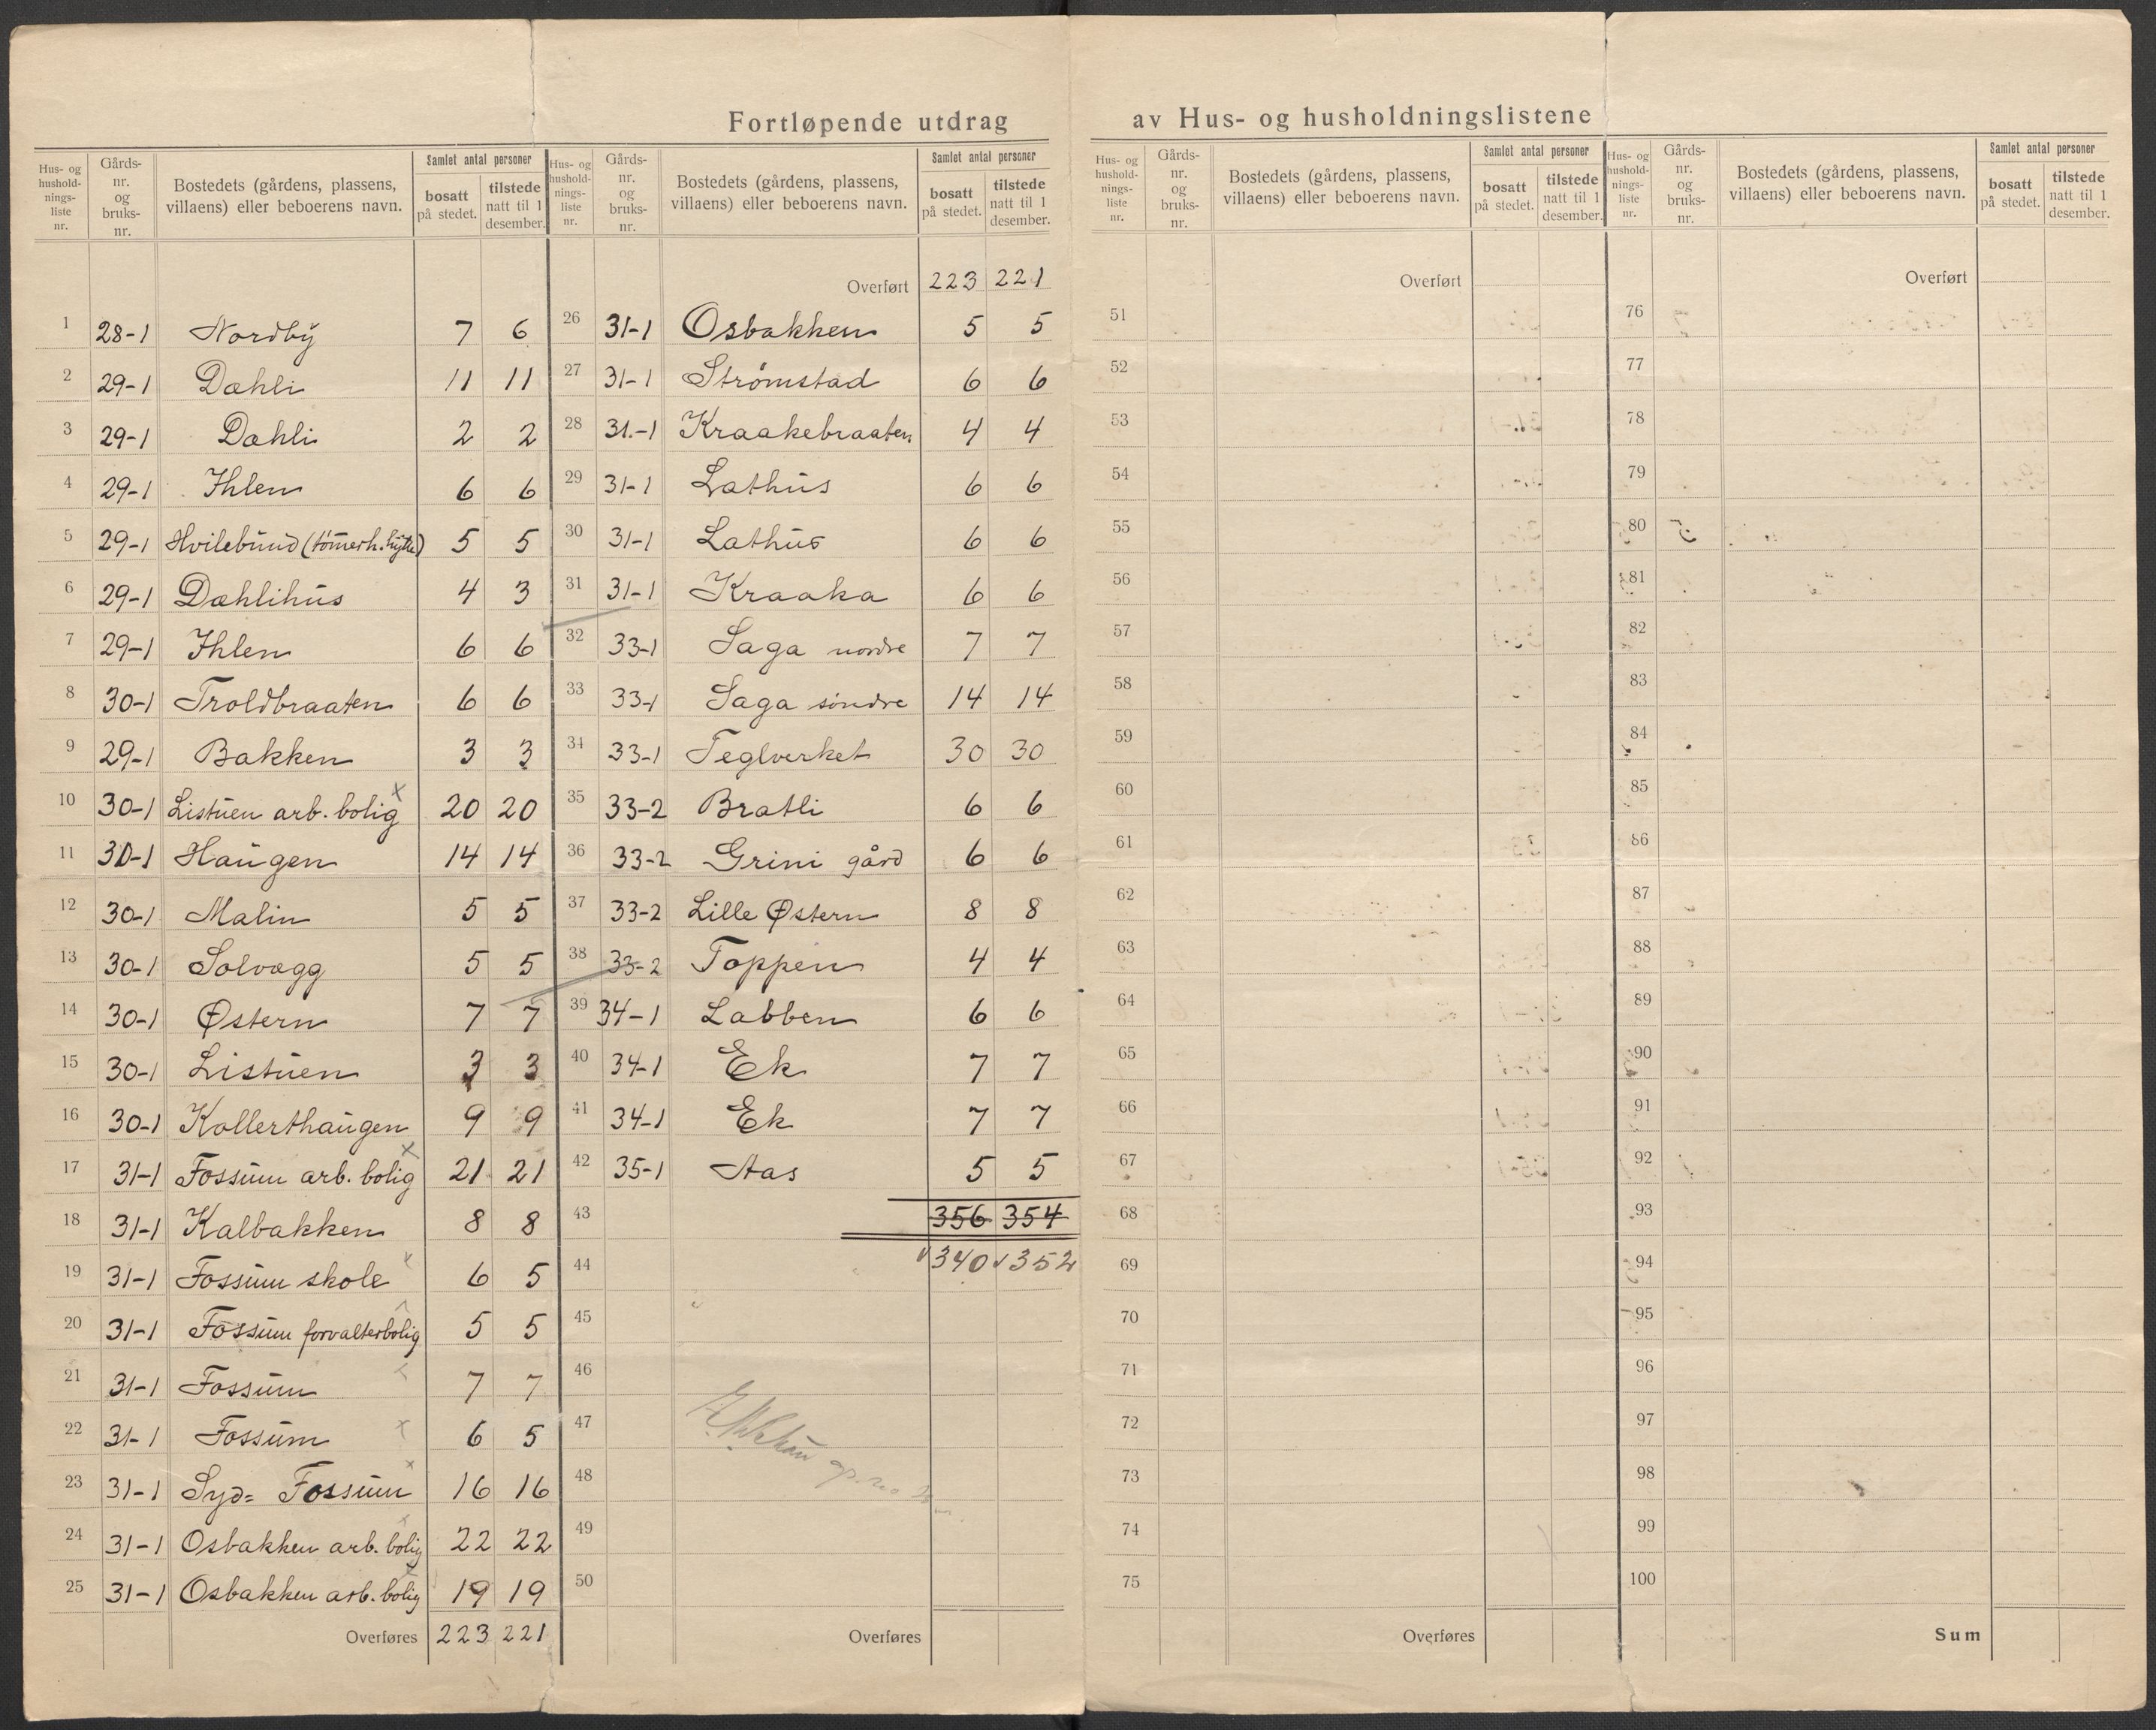 Fortløpende utdrag av Hus- og husholdningslistene
Hus- og husholdnings-liste nr. | Gårds-nr. og bruks-nr. | Bostedets (gårdens, plassens, villaens) eller beboerens navn. | Samlet antal personer | bosatt på stedet. | tilstede natt til 1 desember.
1 28-1 Nordby 7 6
2 29-1 Dæhli 11 11
3 29-1 Dæhli 2 2
4 29-1 Ihlen 6 6
5 29-1 Hvilebund (tömerh. hytte) 5 5
6 29-1 Dæhlihus 4 3
7 29-1 Ihlen 6 6
8 30-1 Troldbraaten 6 6
9 29-1 Bakken 3 3
10 30-1 Listuen arb. bolig x 20 20
11 30-1 Haugen 14 14
12 30-1 Malin 5 5
13 30-1 Solvægg 5 5
14 30-1 Østern 7 7
15 30-1 Listuen 3 3
16 30-1 Kollerthaugen 9 9
17 31-1 Fossum arb. bolig x 21 21
18 31-1 Kalbakken 8 8
19 31-1 Fossum skole x 6 5
20 31-1 Fossum forvalterbolig 5 5
21 31-1 Fossum 7 7
22 31-1 Fossum x 6 5
23 31-1 Syd= Fossum x 16 16
24 31-1 Osbakken arb. bolig x 22 22
25 31-1 Osbakken arb. bolig 19 19
Overføres 223 221
Hus- og husholdnings-liste nr. | Gårds-nr. og bruks-nr. | Bostedets (gårdens, plassens, villaens) eller beboerens navn. | Samlet antal personer | bosatt på stedet. | tilstede natt til 1 desember.
Overført 223 221
26 31-1 Osbakken 5 5
27 31-1 Strømstad 6 6
28 31-1 Kraakebraaten 4 4
29 31-1 Lathus 6 6
30 31-1 Lathus 6 6
31 31-1 Kraaka 6 6
32 33-1 Saga nordre 7 7
33 33-1 Saga søndre 14 14
34 33-1 Teglverket 30 30
35 33-2 Bratli 6 6
36 33-2 Grini gård 6 6
37 33-2 Lille Østern 8 8
38 33-2 Toppen 4 4
39 34-1 Labben 6 6
40 34-1 Ek 7 7
41 34-1 Ek 7 7
42 35-1 Aas 5 5
43 356 354
44 340 352
45
46
47
48
49
50
Overføres
Hus- og husholdnings-liste nr. | Gårds-nr. og bruks-nr. | Bostedets (gårdens, plassens, villaens) eller beboerens navn. | Samlet antal personer | bosatt på stedet. | tilstede natt til 1 desember.
Overført
51
52
53
54
55
56
57
58
59
60
61
62
63
64
65
66
67
68
69
70
71
72
73
74
75
Overføres
Hus- og husholdnings-liste nr. | Gårds-nr. og bruks-nr. | Bostedets (gårdens, plassens, villaens) eller beboerens navn. | Samlet antal personer | bosatt på stedet. | tilstede natt til 1 desember.
Overført
76
77
78
79
80
81
82
83
84
85
86
87
88
89
90
91
92
93
94
95
96
97
98
99
100
Sum